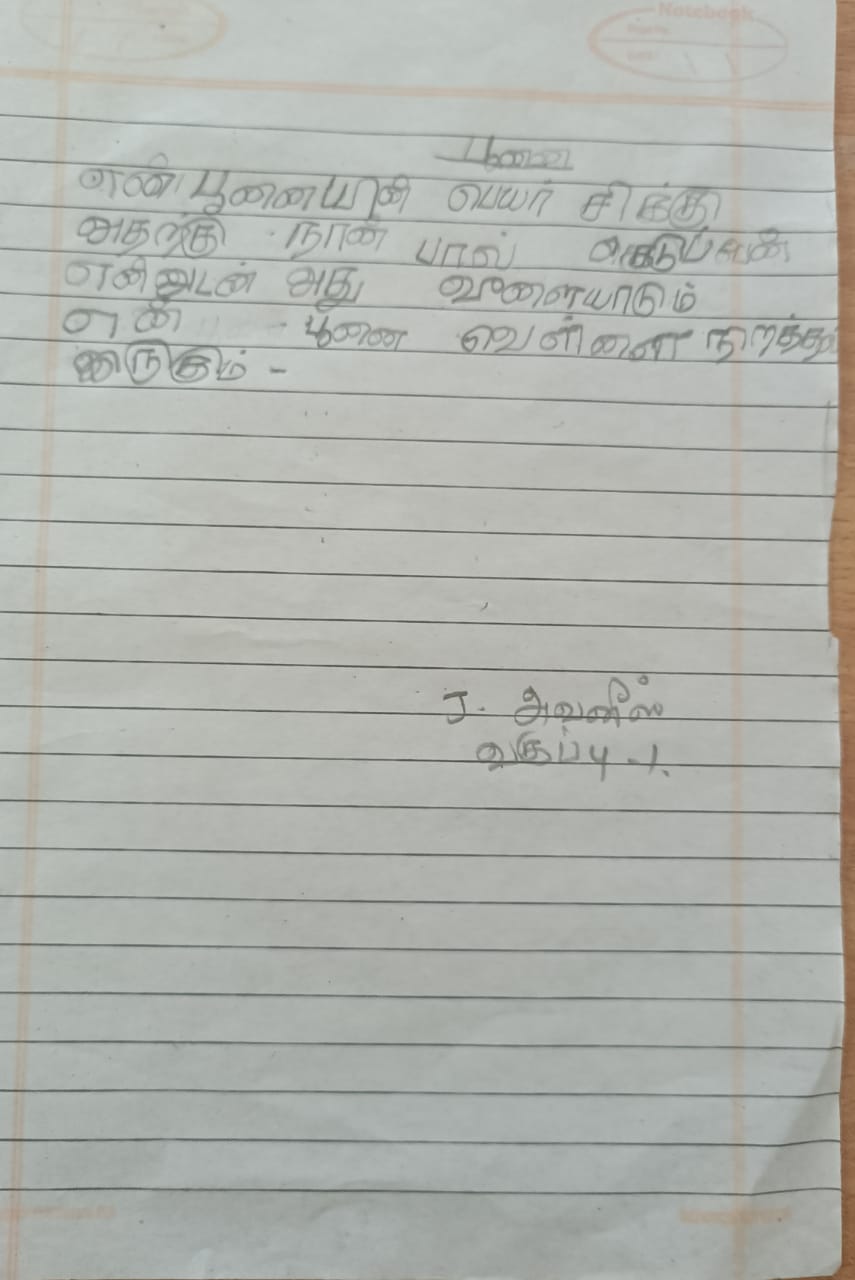 Notebook
பூனை
என் பூனையின் பெயர் சிக்கு
அதற்கு நான் பால்
என்னுடன் அது வளையாடும்
என் பூனை வெள்ளை நிறத்தில்
இருகும் -
J. அவனிஸ்
வகுப்பு -1.